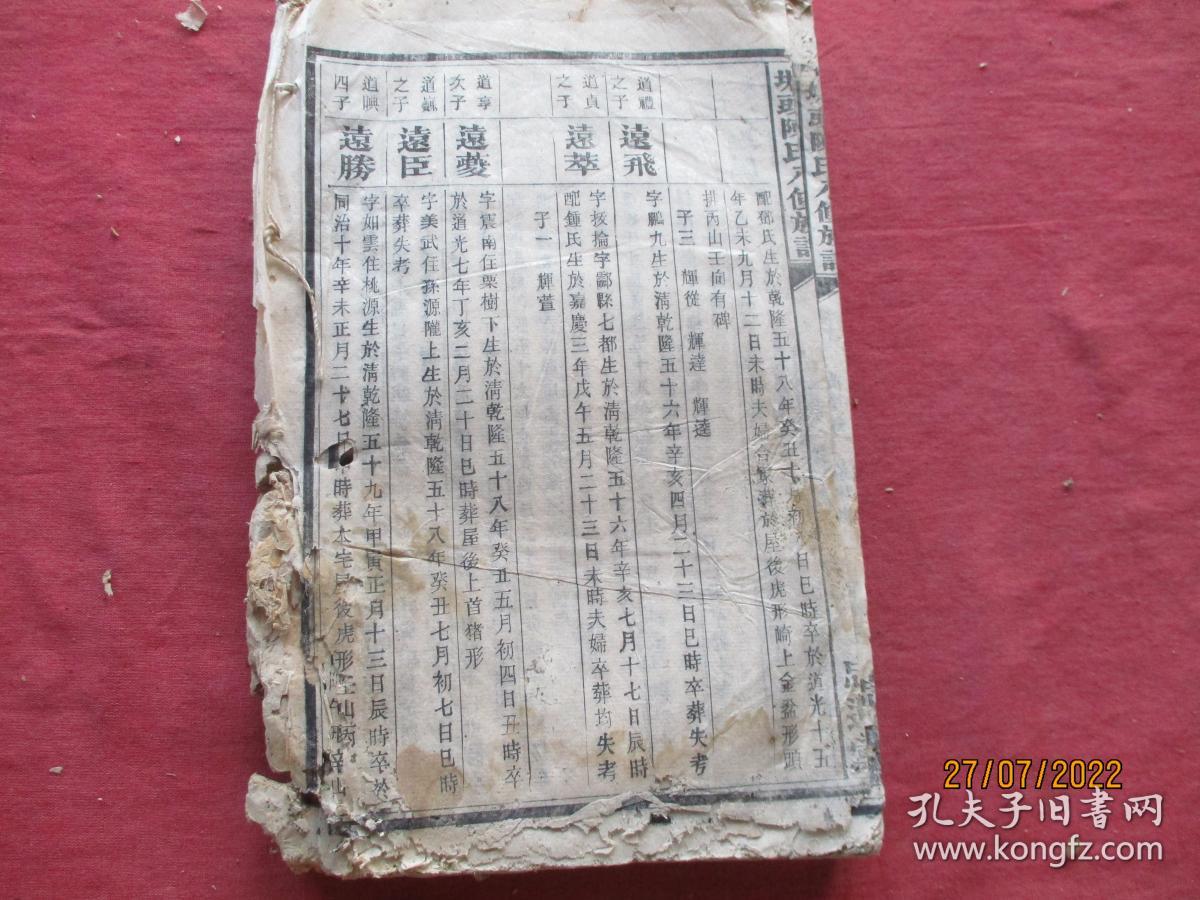 陳氏
族譜
配鄧氏生於乾隆五十八年癸丑十月初日巳時卒於道光十五
年乙未九月十二日未時夫婦合葬於屋後虎形崎上金盆形頭
排丙山壬向有碑
子三 輝從 輝達 輝逵
道禮之子
遠飛
字鵬九生於清乾隆五十六年辛亥四月二十三日巳時卒葬失考
道貞之子
遠萃
字拔掄字酃縣七都生於清乾隆五十六年辛亥七月十七日辰時
配鍾氏生於嘉慶三年戊午五月二十三日未時夫婦卒葬均失考
子一 輝萱
道享次子
遠夔
字震南住栗樹下生於清乾隆五十八年癸丑五月初四日丑時卒
於道光七年丁亥二月二十日巳時葬屋後上首猪形
之子
遠臣
字美武住孫源隴上生於清乾隆五十八年癸丑七月初七日巳時
卒葬失考
道興四子
遠勝
字如雲住桃源生於清乾隆五十九年甲寅正月十三日辰時卒於
同治十年辛未正月二十七日時葬本宅屋後虎形山
27/07/2022
孔夫子旧书网
www.kongfz.com